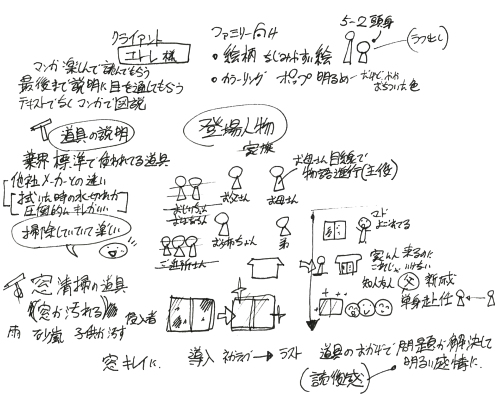 クライアント
エトレ様
ファミリー向け
・絵柄 ちじみやすい絵
・カラーリング ポップ 明るめ
5-2頭身
(ラフ出し)
おちついた色
マンガ 楽しんで読んでもらう
最後まで説明に目を通してもらう
テキストでなくマンガで図説
道具の説明
業界標準で使われてる道具
他社メーカーとの違い
拭いた時の水切れ力
圧倒的にキレイ
掃除していて楽しい
登場人物
家族
お母さん目線で
物語進行(主役)
おじいちゃん
おばあちゃん
お父さん
お母さん
お姉ちゃん
弟
ご近所さん
マド
よごれてる
知人
父
新感
単身赴任
窓清掃の道具
(窓が汚れる)
雨 砂嵐 子供が汚す
侵入者
窓キレイに
導入 ネガティブ→ラスト
道具のおかげで問題が解決して
明るい感情に
(読後感)